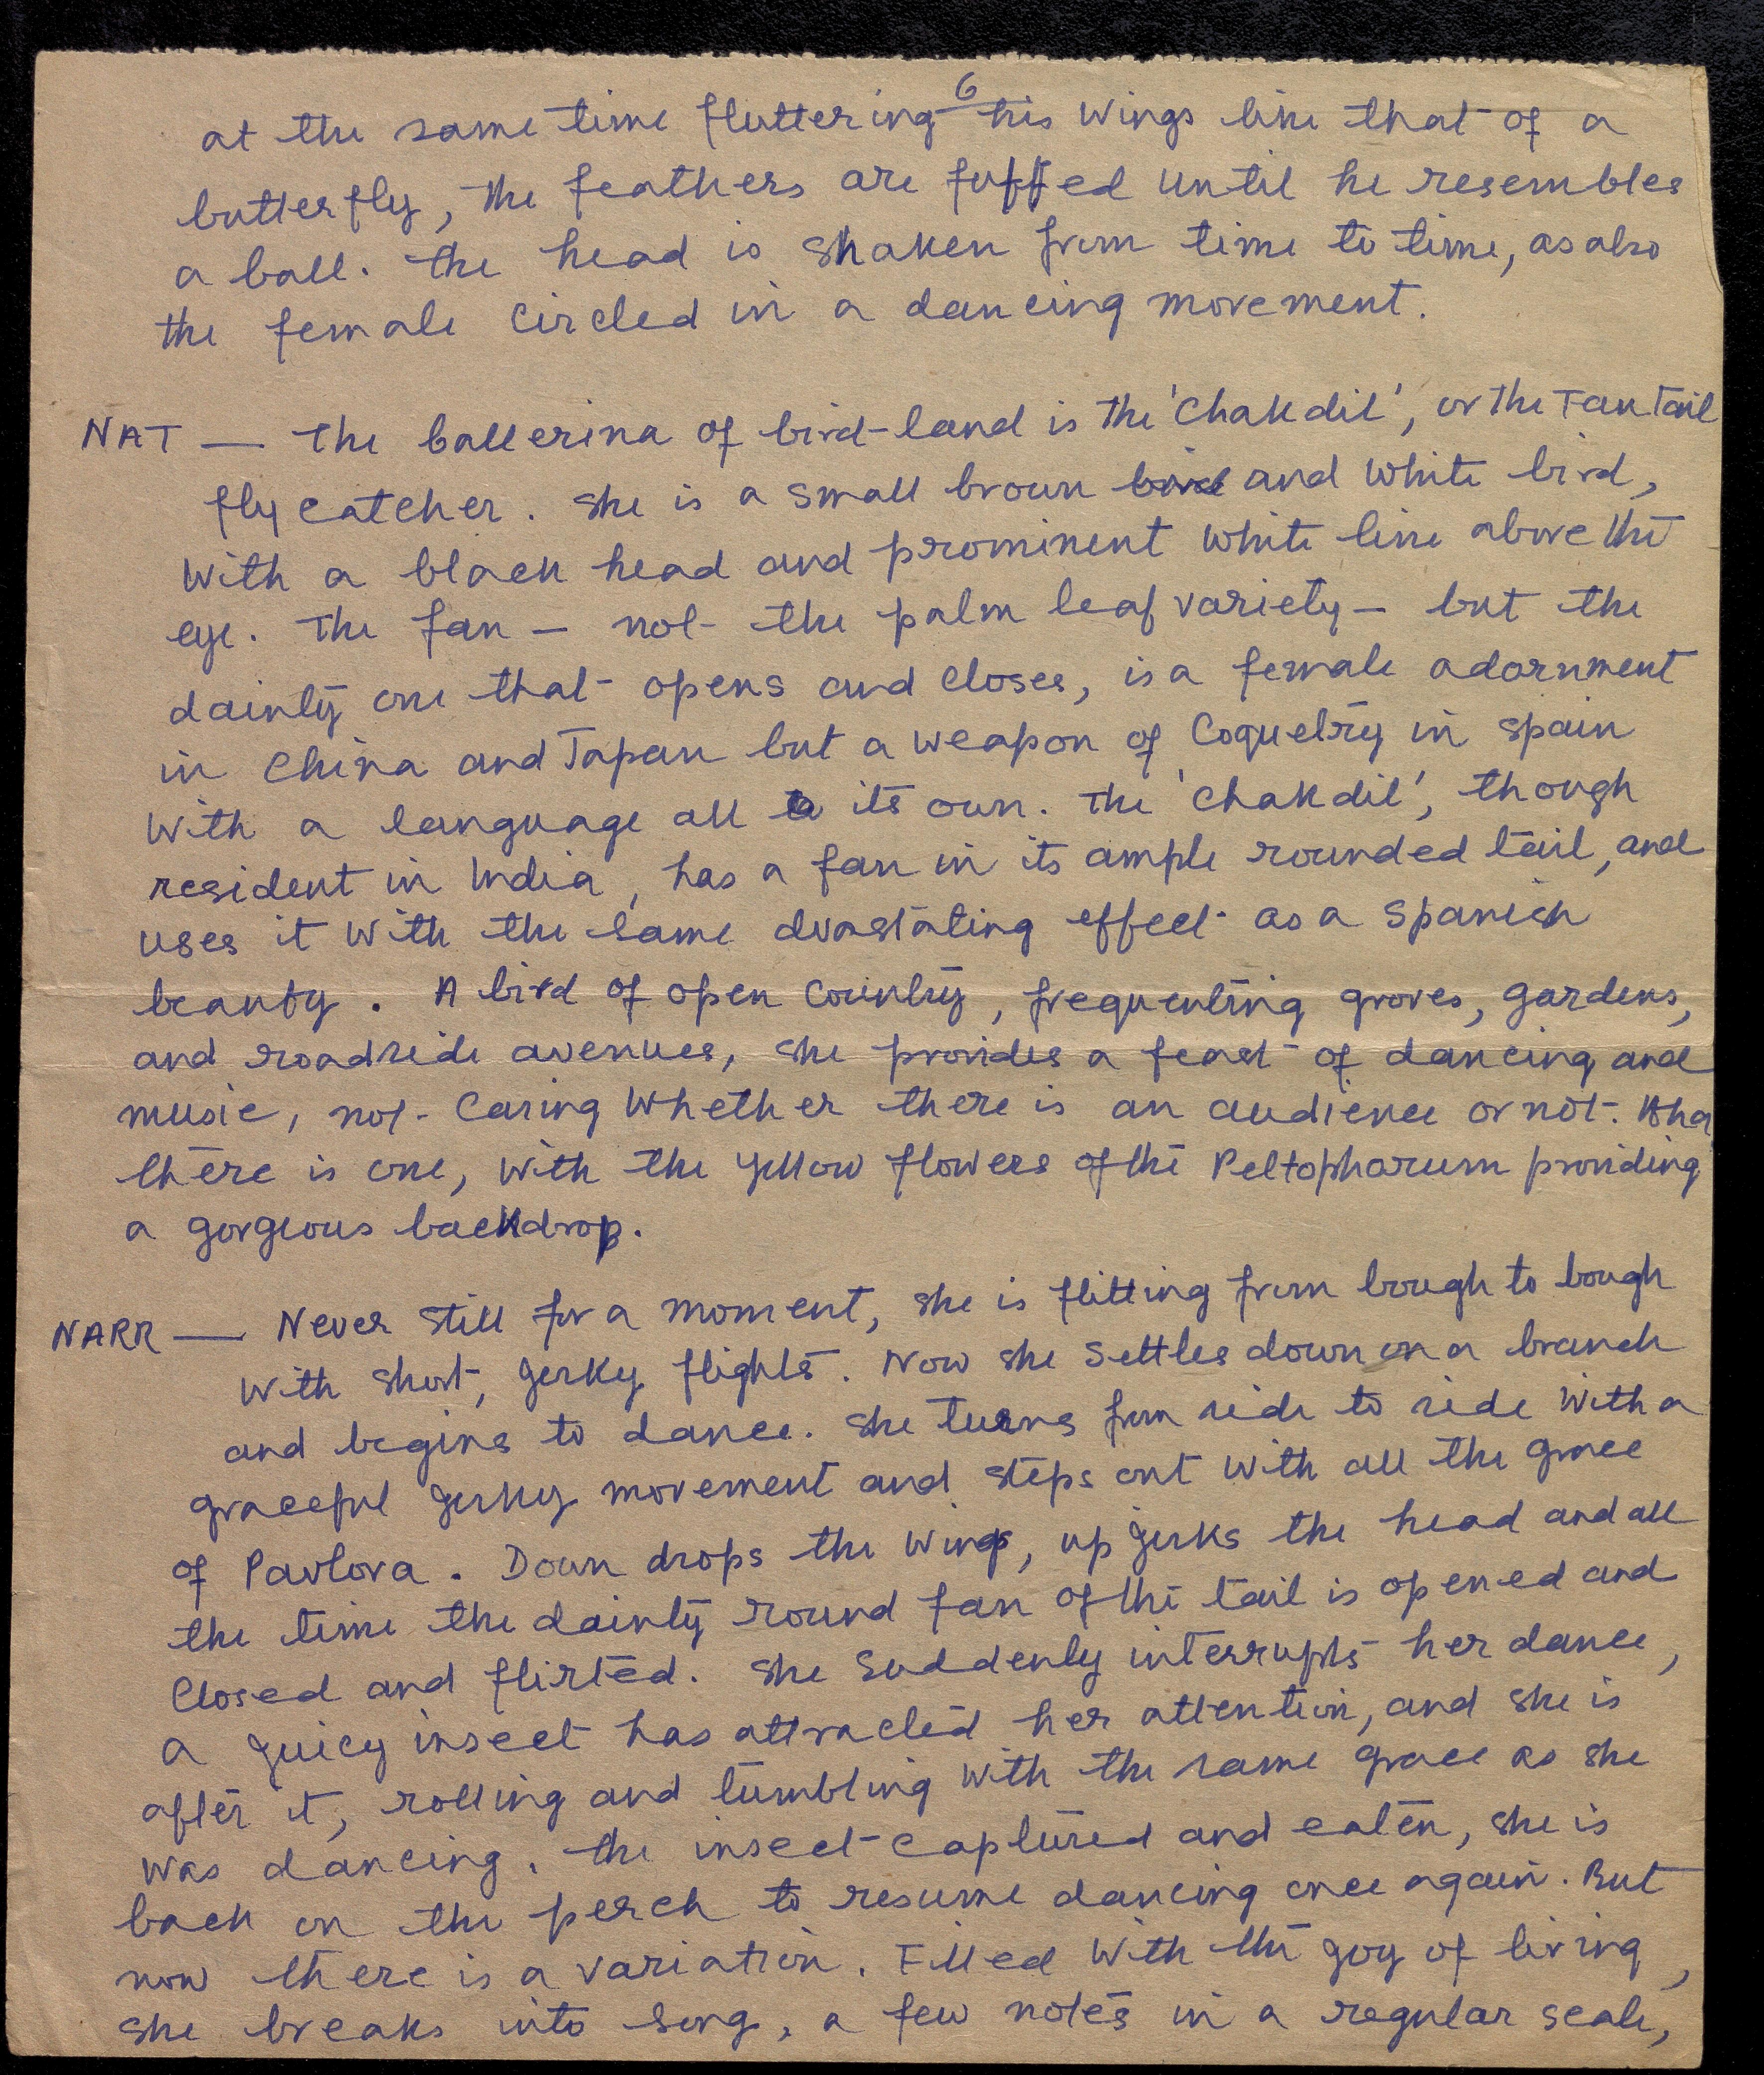 6
at the same time fluttering his wings like that of a
butterfly, the feathers are fuffed until he resembles
a ball. The head is shaken from time to time, as also
the female circled in a dancing movement.
NAT — The ballerina of bird-land is the 'Chakdil', or the Fantail
flycatcher. She is a small brown bird and white bird,
with a black head and prominent white line above the
eye. The fan — not the palm leaf variety — but the
dainty one that opens and closes, is a female adornment
in China and Japan but a weapon of Coquetry in Spain
with a language all its own. The 'Chakdil', though
resident in India, has a fan in its ample rounded tail, and
uses it with the same devastating effect as a Spanish
beauty. A bird of open country, frequenting groves, gardens,
and roadside avenues, she provides a feast of dancing and
music, not caring whether there is an audience or not. Aha
there is one, with the yellow flowers of the Peltopharum providing
a gorgeous backdrop.
NARR — Never still for a moment, she is flitting from bough to bough
with short, jerky flights. Now she settles down on a branch
and begins to dance. She turns from side to side with a
graceful jerky movement and steps out with all the grace
of Pavlova. Down drops the wings, up jerks the head and all
the time the dainty round fan of the tail is opened and
closed and flirted. She suddenly interrupts her dance,
a juicy insect has attracted her attention, and she is
after it, rolling and tumbling with the same grace as she
was dancing. The insect captured and eaten, she is
back on the perch to resume dancing once again. But
now there is a variation. Filled with the joy of living,
she breaks into song, a few notes in a regular scale,